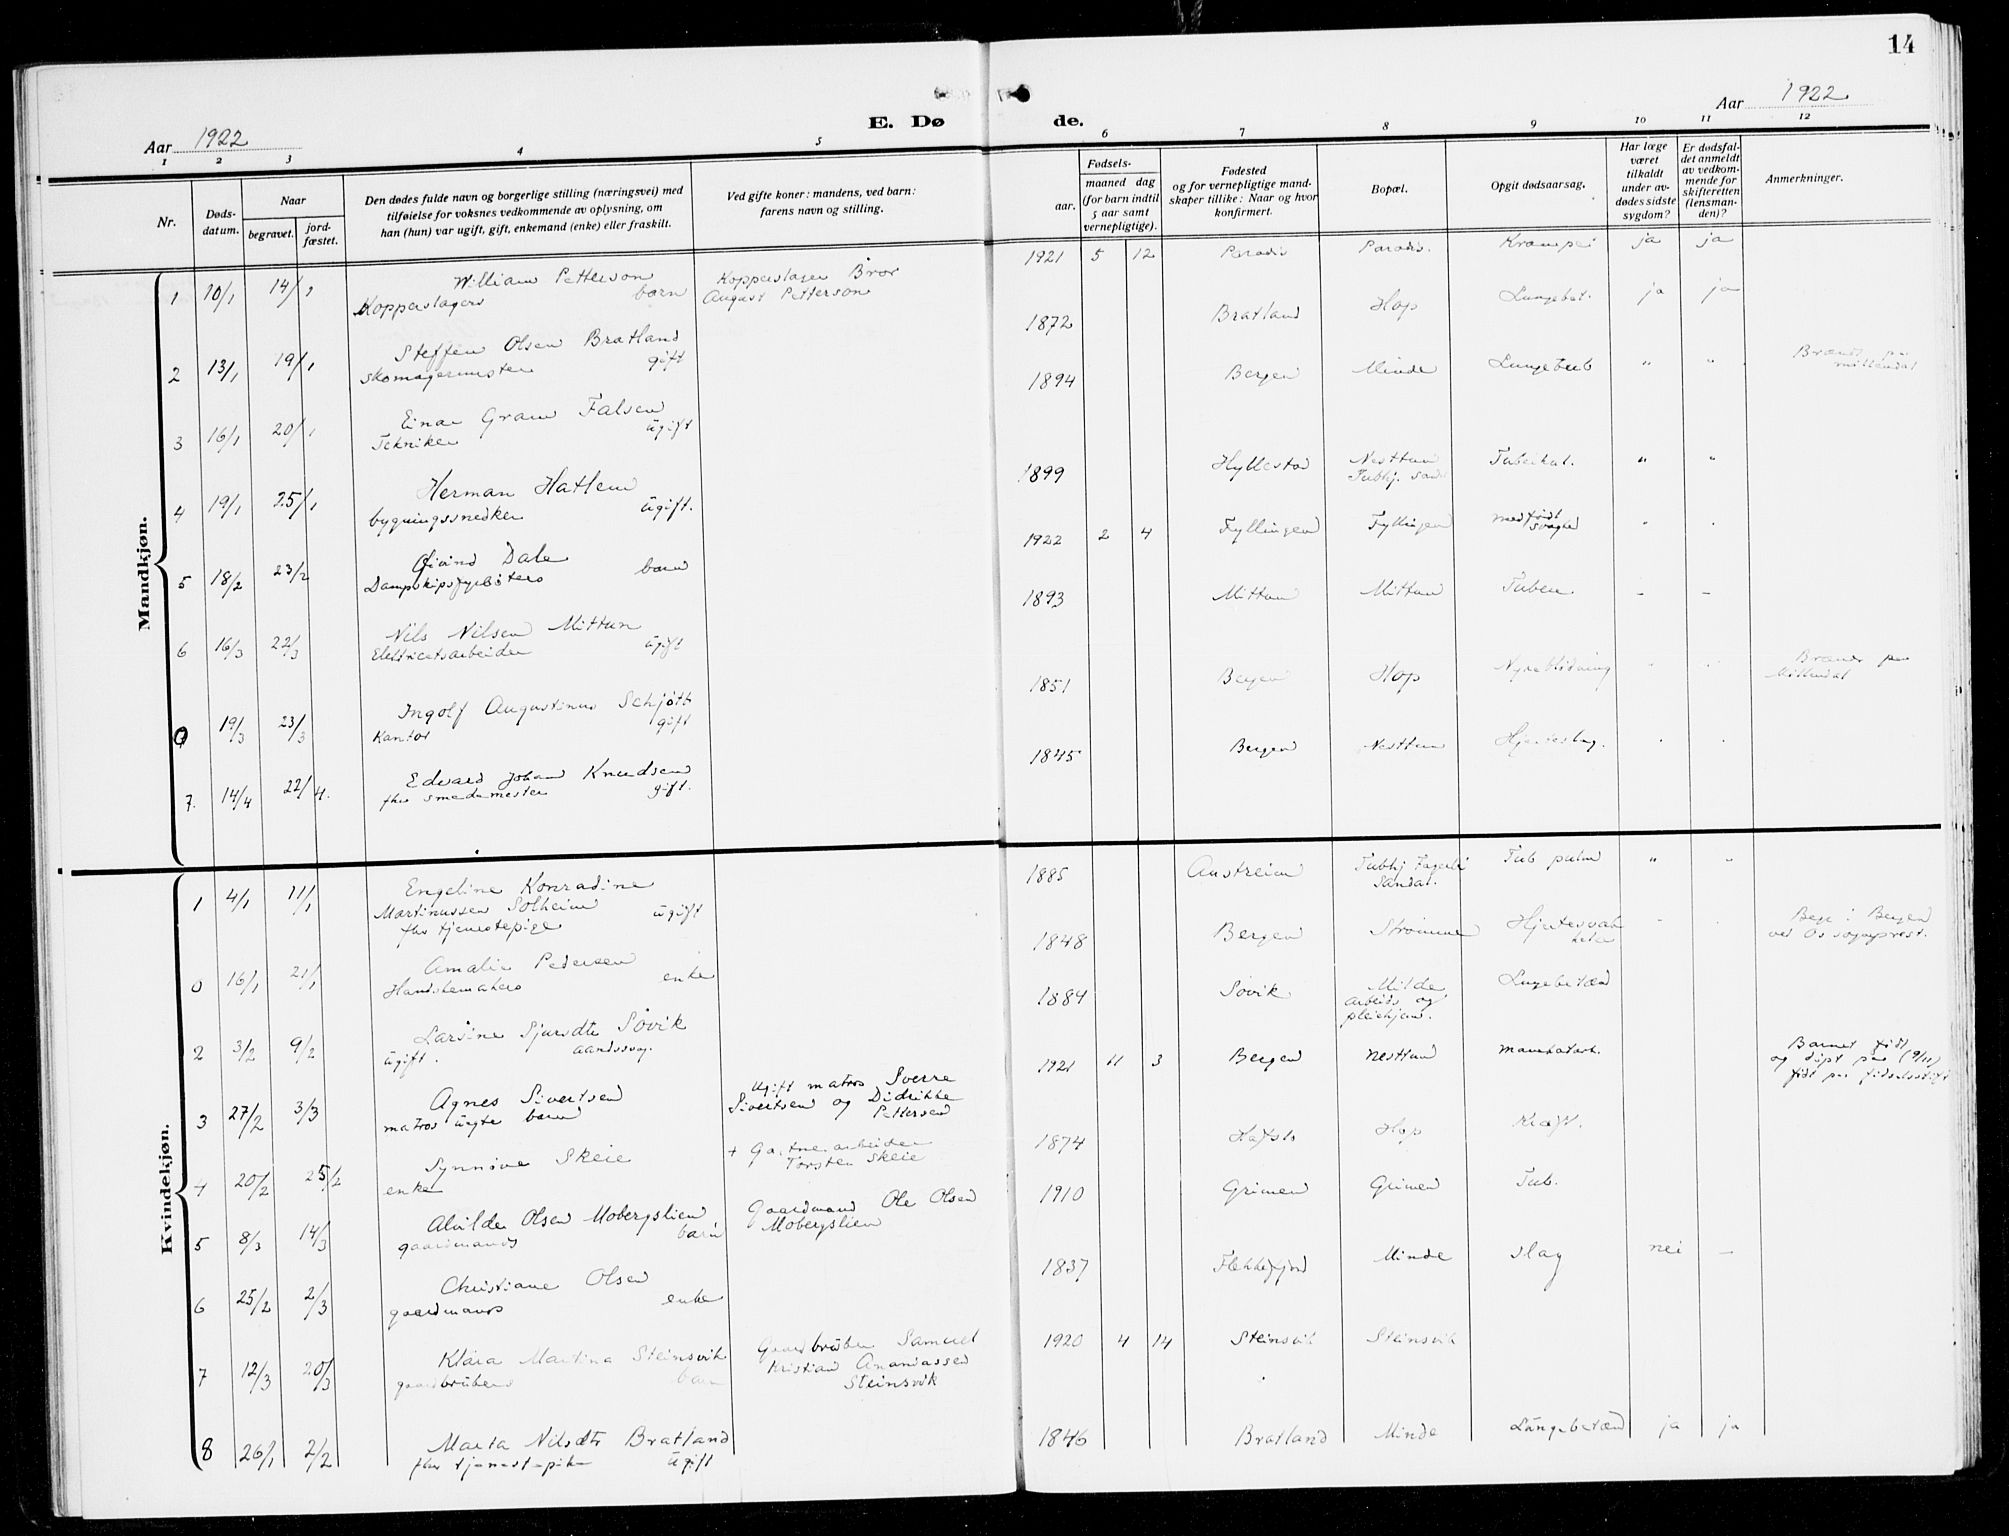 14
Aar 1922
E. Dø
de.
Aar 1922
1 2 3 4 5
6 7 8 9 10 11 12
Nr.
Døds-
datum.
Naar
begravet.
jord-
fæstet.
Den dødes fulde navn og borgerlige stilling (næringsvei) med
tilføielse for voksnes vedkommende av oplysning, om
han (hun) var ugift, gift, enkemand (enke) eller fraskilt.
Ved gifte koner: mandens, ved barn:
farens navn og stilling.
Fødsels-
aar.
maaned dag
(for barn indtil
5 aar samt
vernepligtige).
Fødested
og for vernepligtige mand-
skaper tillike: Naar og hvor
konfirmert.
Bopæl.
Opgit dødsaarsag.
Har læge
været
tilkaldt
under av-
dødes sidste
sygdom?
Er dødsfal-
det anmeldt
av vedkom-
mende for
skifteretten
(lensman-
den)?
Anmerkninger.
Mandkjøn.
1 10/1 14/1 William Petterson
Kopperslagers barn
Kopperslager Bror
August Petterson
1921 5 12 Paradis Paradis. Krampe ja ja
2 13/1 19/1 Steffen Olsen Bratland
skomagermester gift
1872 Bratland Hop Lungebet. ja ja
3 16/1 20/1 Einar Gram Falsen
Tekniker ugift
1894 Bergen Minde Lungetub " "
4 19/1 25/1 Herman Hatlem
bygningssnedker ugift.
1899 Hyllestad Nesttun
Tubhj. Tuberkul. " "
5 18/2 23/2 Øivind Dale
Dampskipsfyrbøters barn
1922 2 4 Fyllingen Fyllingen medfødt
svaghed " "
6 16/3 22/3 Nils Nilsen Mittun
Elektricetsarbeider ugift
1893 Mittun Mittun Tuberk. - -
0 19/3 23/3 Ingolf Augustinus Schjøtt
Kantor gift
1851 Bergen Hop Nyreblødning " " Brændt paa
Møllendal
7. 14/4 22/4. Edvard Johan Knudsen
fhv smedemester gift.
1845 Bergen Nesttun Hjerteslag. " "
Kvindekjøn.
1 4/1 11/1 Engeline Konradine
Martinussen Solheim
fhv tjenestepige ugift
1885 Austreim Tubhj Fagerli
Sandal. Tub pulm " "
0 16/1 21/1 Amalie Pedersen
Handskemakers enke
1848 Bergen Strømme Hjertesvak
heter - - Begr i Bergen
ved Os sogneprest.
2 3/2 9/2 Larsine Sjursdtr Søvik
ugift. aandssvag.
1884 Søvik Milde
arbeids og
pleiehjem. Lungebetænd
3 27/2 3/3 Agnes Sivertsen
matros uegte barn
Ugift matros Sverre
Sivertsen og Didrikke
Pettersen
1921 11 3 Bergen Nesttun Mavekatarh. Barnet født
og døpt paa (9/11)
født paa fødselsstift
4 20/2 25/2 Synnøve Skeie
enke
+ Gartnerarbeider
Torsten Skeie
1874 Hafslo Hop Kræft.
5 8/3 14/3 Alvilde Olsen Mobergslien
gaardmands barn
Gaardmand Ole Olsen
Mobergslien
1910 Grimen Grimen Tub.
6 25/2 2/3 Christiane Olsen
gaardmands enke
1837 Flekkefjord Minde slag nei -
7 12/3 20/3 Klara Martina Steinsvik
gaardbrukers barn
Gaardbruker Samuel
Kristian Ananiassen
Steinsvik
1920 4 14 Steinsvik Steinsvik
8 26/1 2/2 Marta Nilsdtr Bratland
fhv tjenestepike ugift
1846 Bratland Minde Lungebetænd ja ja